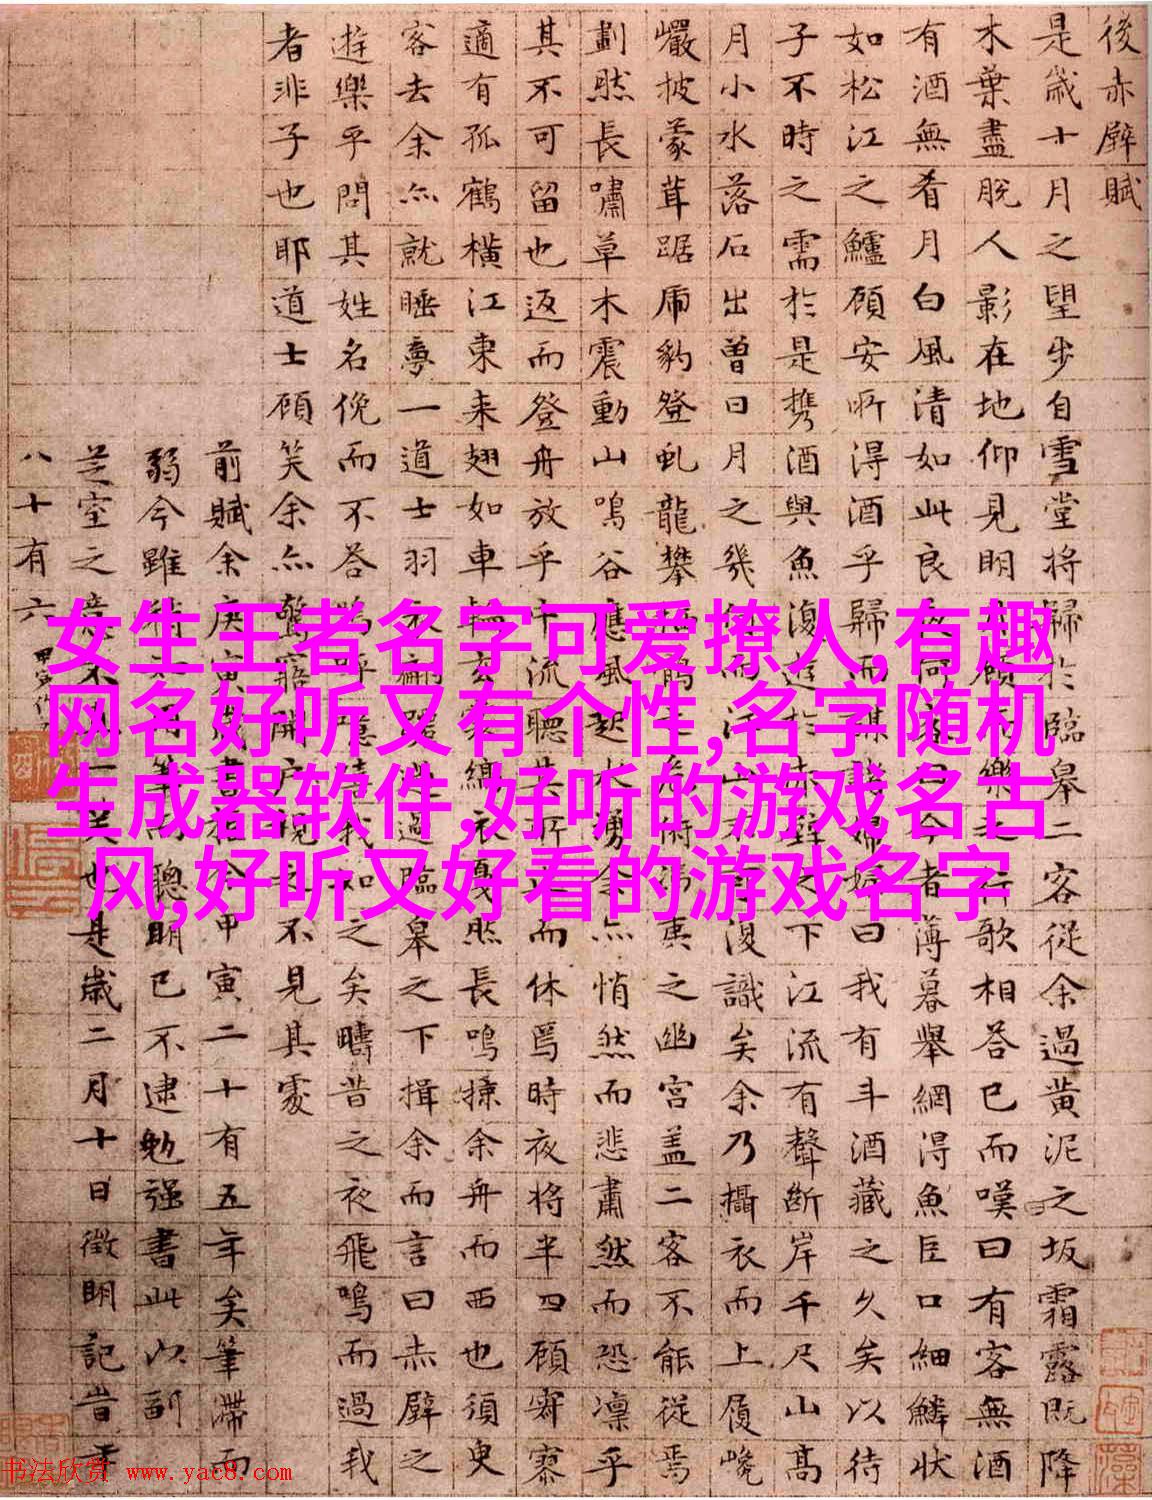 後赤壁賦
是歲十月之望步自雪堂將歸於臨皋二客從余過黃泥之坂霜露既降
木葉盡脫人影在地仰見明月顧而樂之行歌相答已而嘆曰有客無酒
有酒無肴月白風清如此良夜何客曰今者薄暮舉網得魚巨口細鱗狀
如松江之鱸顧安所得酒乎歸而謀諸婦婦曰我有斗酒藏之久矣以待
子不時之需於是攜酒與魚復遊於赤壁之下江流有聲斷岸千尺山高
月小水落石出曾日月之幾何而江山不可復識矣余乃攝衣而上履巉
巖披蒙茸踞虎豹登虬龍攀栖鶻之危俯馮夷之幽宮蓋二客不能從焉
劃然長嘯草木震動山鳴谷應風起水湧余亦悄然而悲肅然而恐凜乎
其不可留也返而登舟放乎中流聽其所止而休焉時夜將半四顧寂寥
適有孤鶴橫江東來翅如車輪玄裳縞衣戛然長鳴掠余舟而西也須臾
客去余亦就睡夢一道士羽衣翩躚過臨皋之下揖余而言曰赤壁之
遊樂乎問其姓名俛而不答嗚呼噫嘻我知之矣疇昔之夜飛鳴而過我
者非子也耶道士顧笑余亦驚寤開戶視之不見其處
前賦余庚寅歲書甲寅二十有五年矣筆滯而
弱今雖聰明已不逮勉強書此以副
芝室之意不一笑也是歲二月十日徵明記
八十有六
女生王者名字可爱撩人,有趣
网名好听又有个性,名字随机
生成器软件,好听的游戏名古
风,好听又好看的游戏名字
书法欣赏 www.yac8.com